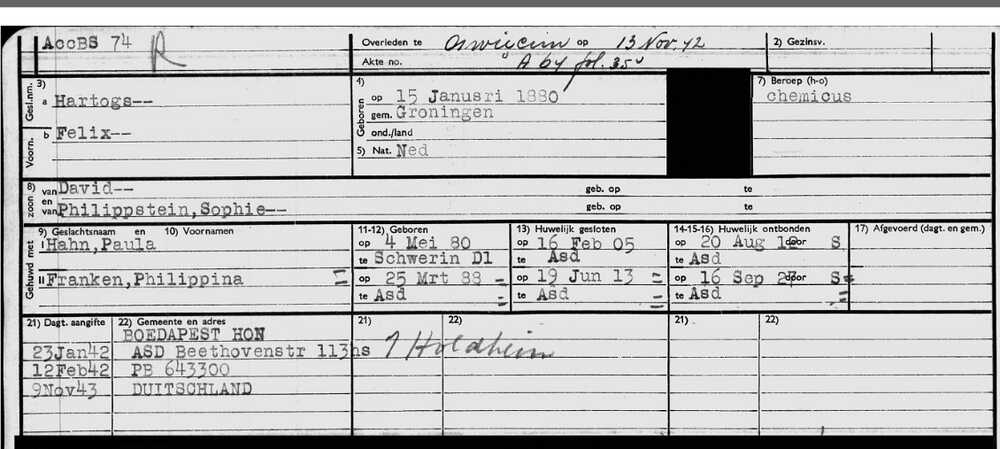 AccBS 74 R
Overleden te Oswiecim op 13 Nov. 42
2) Gezinsv.
Akte no. A 64 fol. 35v
Gesl.nm. 3) a Hartogs--
4) Geboren op 15 Janusri 1880
7) Beroep (h-o)
chemicus
gem. Groningen
Voorn. b Felix--
ond./land
5) Nat. Ned
8) zoon van David-- geb. op te
en van Philippstein,Sophie-- geb. op te
Gehuwd met 9) Geslachtsnaam en 10) Voornamen
11-12) Geboren
13) Huwelijk gesloten
14-15-16) Huwelijk ontbonden
17) Afgevoerd (dagt. en gem.)
I Hahn,Paula op 4 Mei 80 op 16 Feb 05 op 20 Aug door S
te Schwerin Dl te Asd te Asd
II Franken,Philippina = op 25 Mrt 88 = op 19 Jun 13 = op 16 Sep door S=
te Asd = te Asd = te Asd =
21) Dagt. aangifte 22) Gemeente en adres 21) 22) 21) 22)
BOEDAPEST HON
23Jan42 ASD Beethovenstr 113hs Holdheim
12Feb42 PB 643300
9Nov43 DUITSCHLAND